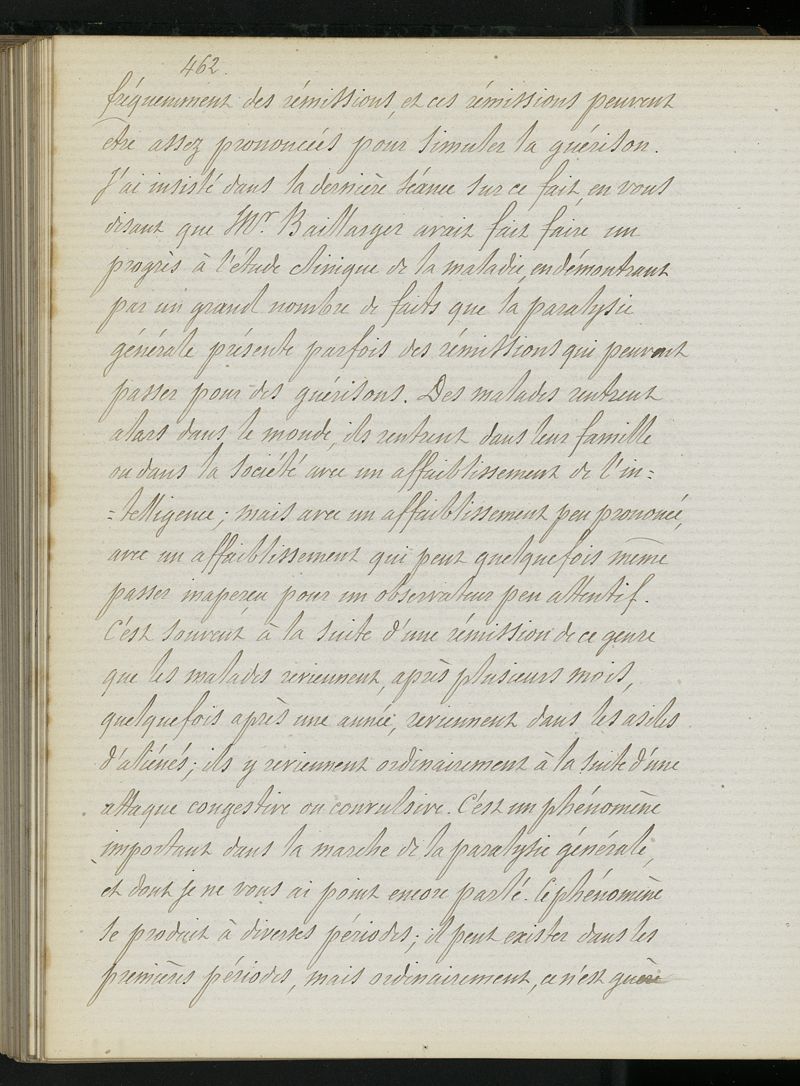 462.
fréquemment des rémissions, et ces rémissions peuvent
être assez prononcées pour simuler la guérison.
J'ai insisté dans la dernière séance sur ce fait, en vous
disant que Mr. Baillarger avait fait faire un
progrès à l'étude clinique de la maladie, en démontrant
par un grand nombre de faits que la paralysie
générale présente parfois des rémissions qui peuvent
passer pour des guérisons. Des malades rentrent
alors dans le monde, ils rentrent dans leur famille
ou dans la société avec un affaiblissement de l'in=
=telligence; mais avec un affaiblissement peu prononcé,
avec un affaiblissement qui peut quelquefois même
passer inaperçu pour un observateur peu attentif.
C'est souvent à la suite d'une rémission de ce genre
que les malades reviennent, après plusieurs mois,
quelquefois après une année, reviennent dans les asiles
d'aliénés; ils y reviennent ordinairement à la suite d'une
attaque congestive ou convulsive. C'est un phénomène
important dans la marche de la paralysie générale,
et dont je ne vous ai point encore parlé. Ce phénomène
se produit à diverses périodes; il peut exister dans les
premières périodes, mais ordinairement, ce n'est guère